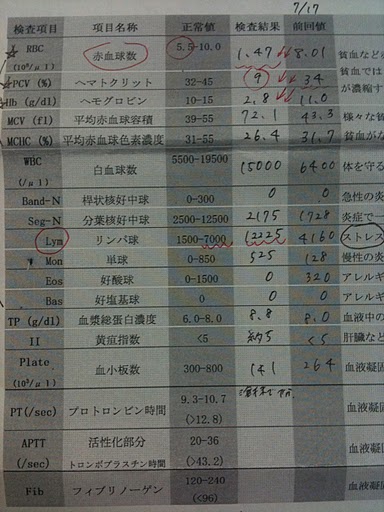 7/17
検査項目 項目名称 正常値 検査結果 前回値
RBC (10⁶/μl) 赤血球数 5.5-10.0 1.47 8.01 貧血など
PCV (%) ヘマトクリット 32-45 9 34 貧血では
が濃縮す
Hb (g/dl) ヘモグロビン 10-15 2.8 11.0
MCV (fl) 平均赤血球容積 39-55 72.1 43.3 様々な貧
MCHC (%) 平均赤血球色素濃度 31-55 26.4 31.7 貧血がな
WBC (/μl) 白血球数 5500-19500 15000 6400 体を守る
Band-N 桿状核好中球 0-300 0 0 急性の炎
Seg-N 分葉核好中球 2500-12500 2175 1728 炎症で
Lym リンパ球 1500-7000 12225 4160 ストレス
Mon 単球 0-850 525 128 慢性の炎
Eos 好酸球 0-1500 0 320 アレルギ
Bas 好塩基球 0 0 0 アレルギ
TP (g/dl) 血漿総蛋白濃度 6.0-8.0 8.8 8.0 血液中の
II 黄疸指数 <5 約5 <5 肝臓など
Plate (10³/μl) 血小板数 300-800 141 264 血液凝固
PT(/sec) プロトロンビン時間 9.3-10.7 (>12.8) 血液凝固
APTT (/sec) 活性化部分トロンボプラスチン時間 20-36 (>43.2) 血液凝固
Fib フィブリノーゲン 120-240 (<96) 血液凝